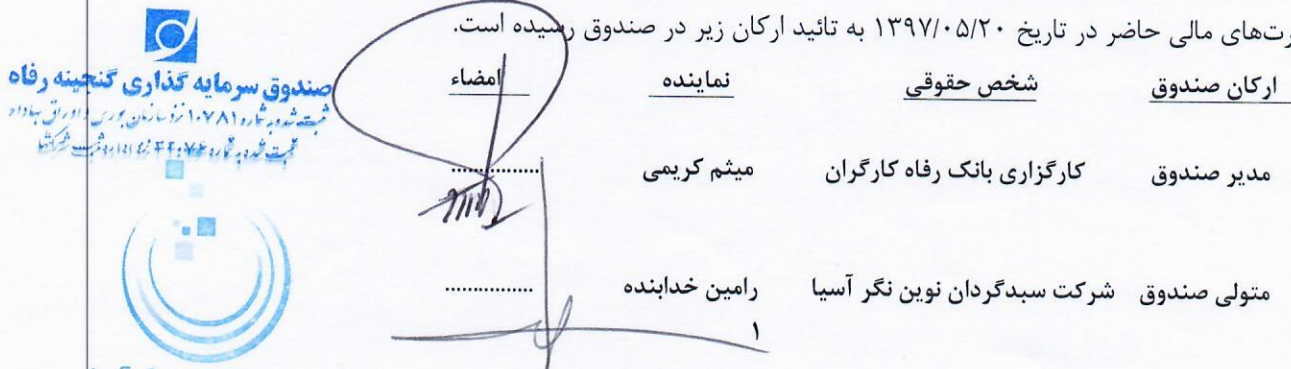 رت‌های مالی حاضر در تاریخ ۱۳۹۷/۰۵/۲۰ به تائید ارکان زیر در صندوق رسیده است.
ارکان صندوق شخص حقوقی نماینده امضاء
مدیر صندوق کارگزاری بانک رفاه کارگران میثم کریمی ................
متولی صندوق شرکت سبدگردان نوین نگر آسیا رامین خدابنده ................
۱
صندوق سرمایه گذاری گنجینه رفاه
ثبت شده به شماره ۱۰۷۸۱ نزد سازمان بورس و اوراق بهادار
ثبت شده به شماره نزد اداره ثبت شرکتها